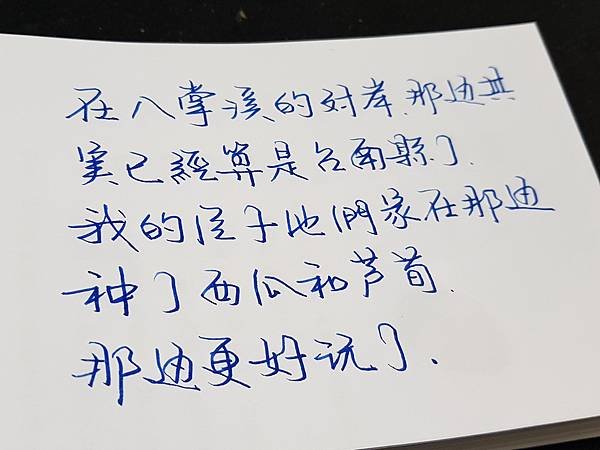 在八掌溪的对岸.那边其
实已經算是台南縣了.
我的侄子他們家在那边
种了西瓜和芦荀.
那边更好玩了.